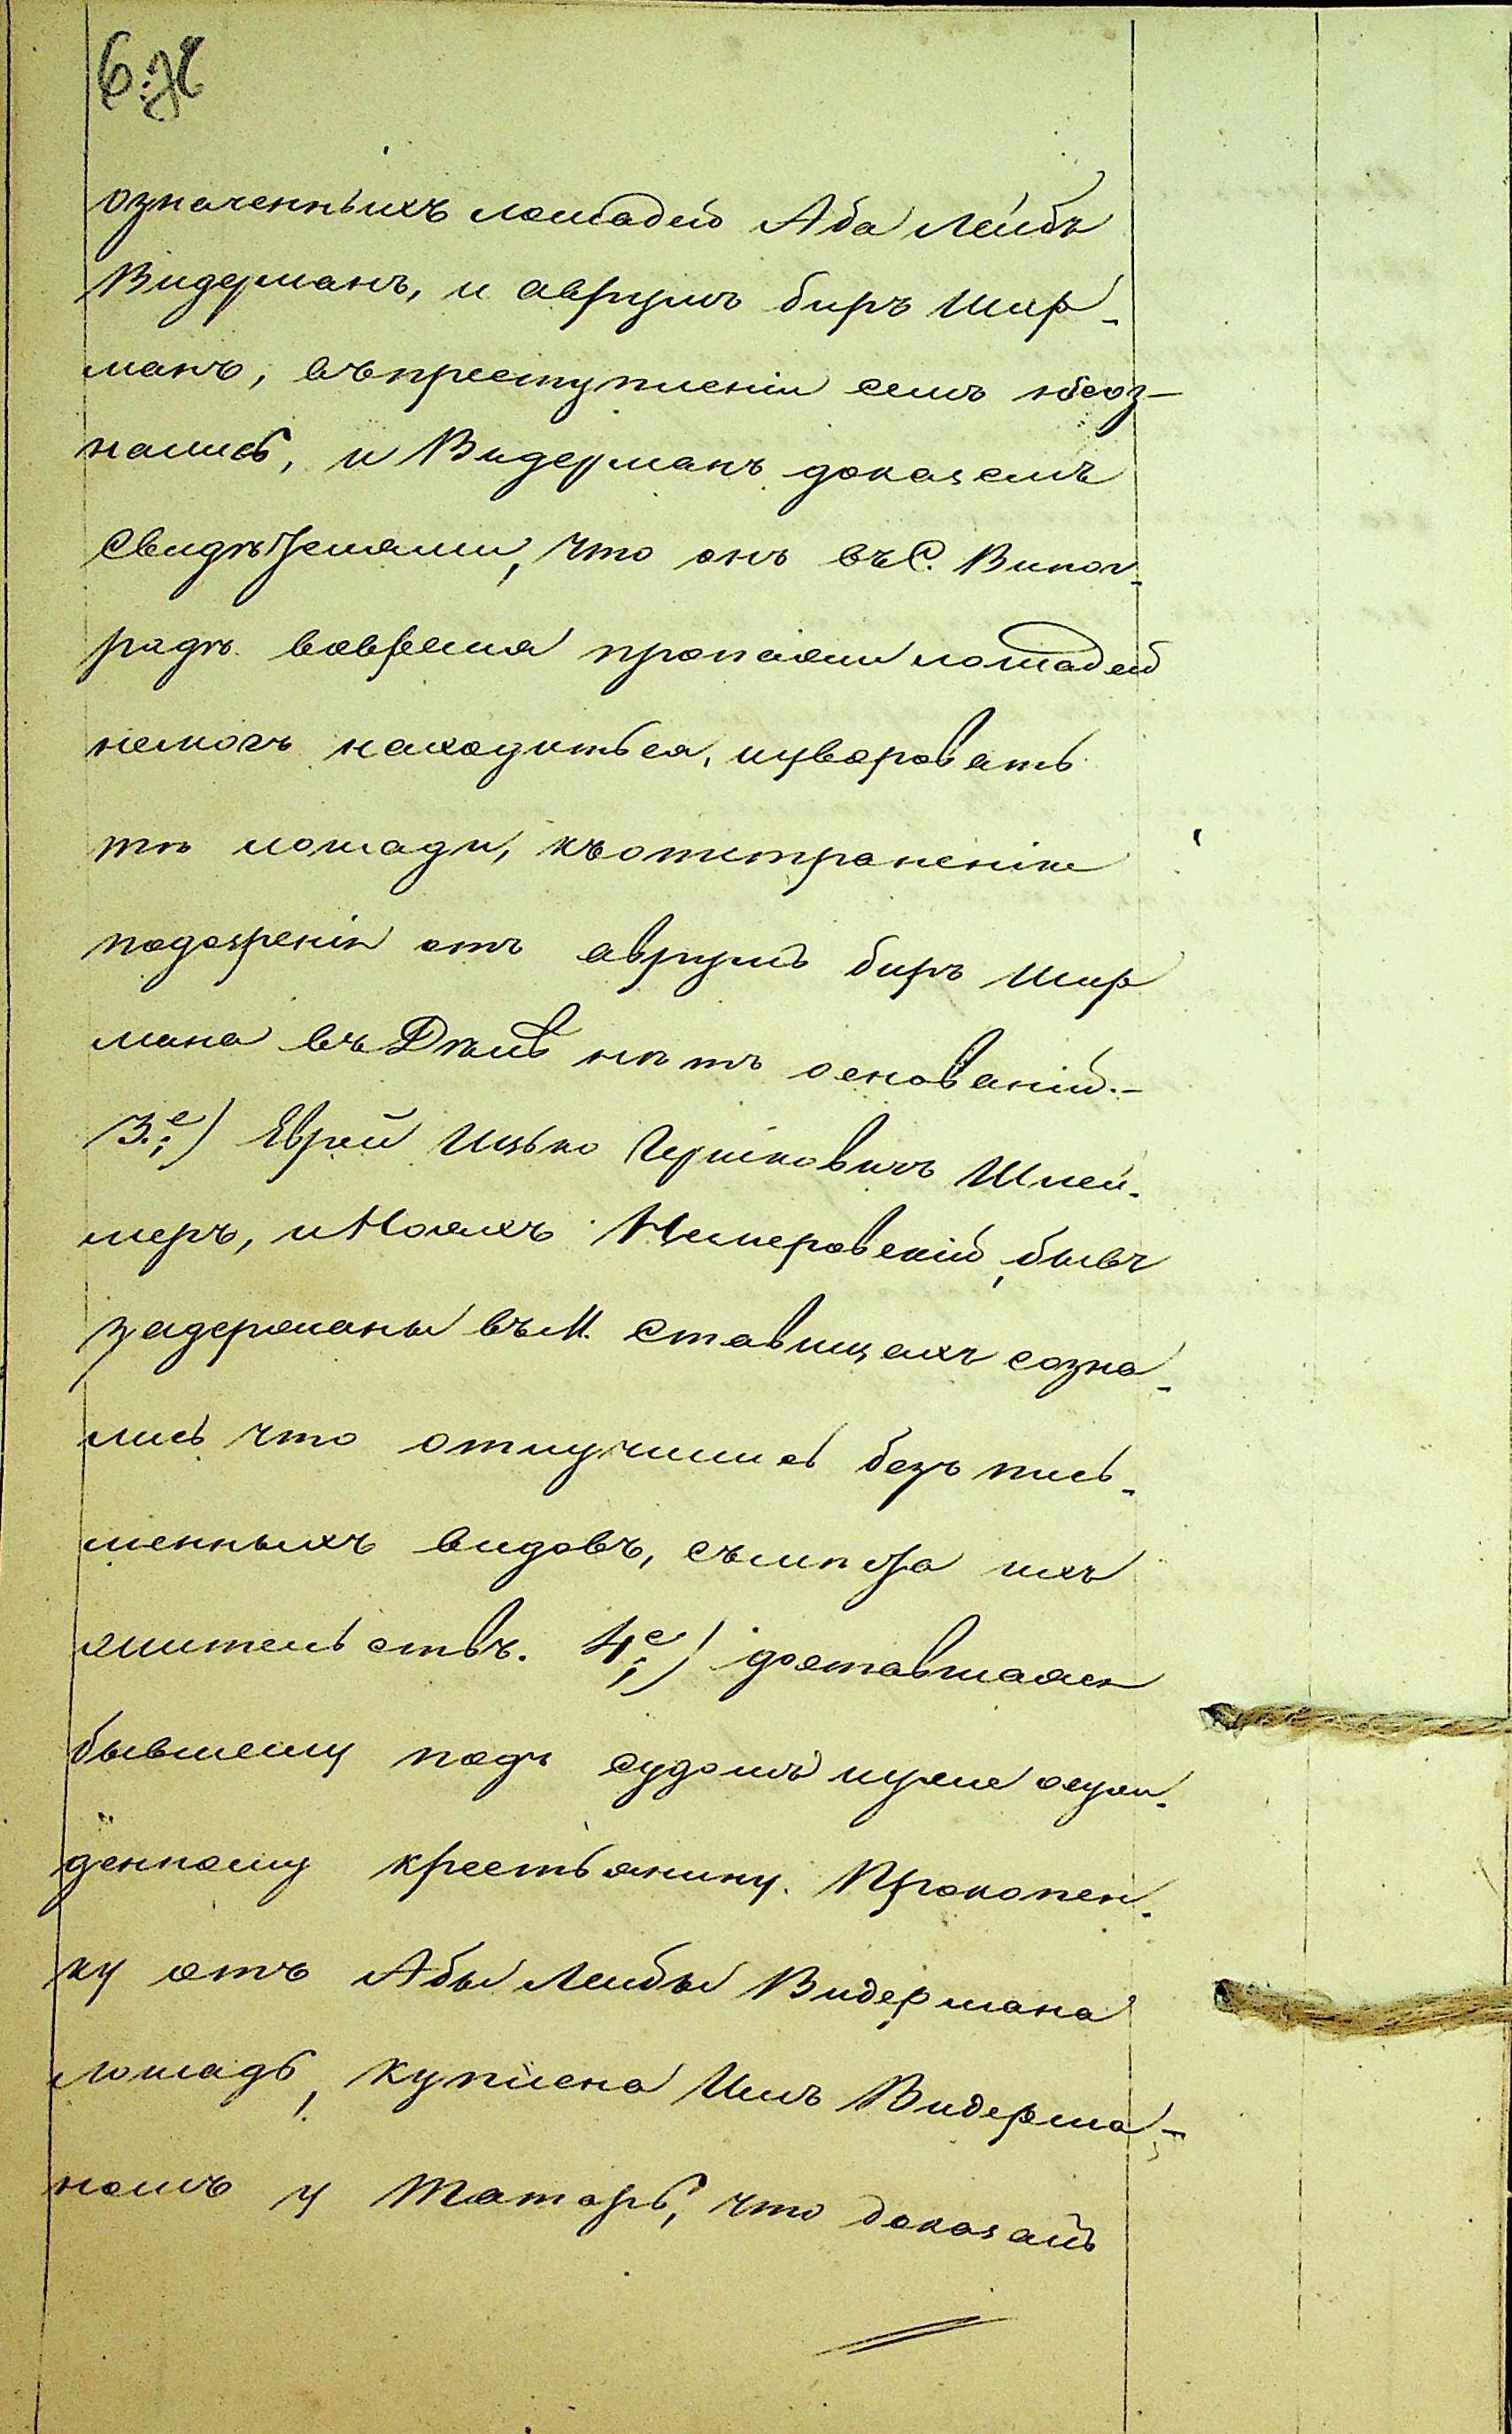 означенныхъ лошадей Аба Лейбъ
Видерманъ, и аврумъ биръ Шир-
манъ, въпреступленіи семъ несоз-
нались, и Видерманъ доказалъ
Свидѣтелями, что онъ въ С. Виног-
радѣ вовремя пропажи лошадей
немогъ находиться, иуворовать
тѣ лошади, къотстраненію
подозренія отъ аврумъ биръ Шир
мана въ Дѣлѣ нѣтъ основаній.-
3.е) Еврей Ицько Гершковичъ Шлей-
меръ, и Ноахъ Немеровскій, бывъ
задержаны въ М. Ставищахъ созна-
лись что отлучились безъ пись-
менныхъ видовъ, съмѣста ихъ
жительствъ. 4.е) доставшаяся
бывшему подъ судомъ иуже осуж-
денному крестьянину Прокопен-
ку отъ Абы Лейбы Видермана
лошадь, куплена Имъ Видерма-
номъ у Татаръ, что доказалъ